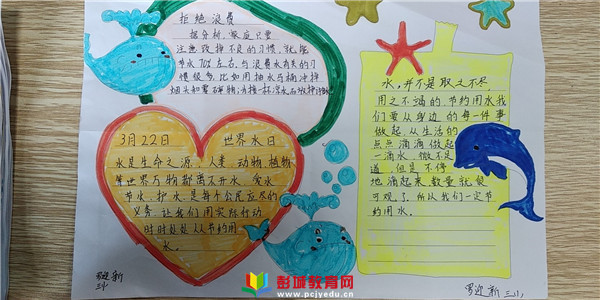 拒绝浪费
据分析,家庭只要
注意改掉不良的习惯,就能
节水70%左右,与浪费水有关的习
惯很多,比如:用抽水马桶冲掉
烟头和零碎物
3月22日 世界水日
水是生命之源,人类、动物、植物
等世界万物都离不开水,爱水
节水、护水,是每个公民应尽的
义务,让我们用实际行动
时时处处从节约用
水。
水,并不是取之不尽,
用之不竭的,节约用水我
们要从身边的每一件事
做起,从生活的
点点滴滴做起
一滴水,微不足
道,但是不停
地滴起来,数量就很
可观了,所以我们一定节
约用水。
罗迎新
三、1
罗迎新 三、1
彭城教育网
www.pcjyedu.cn